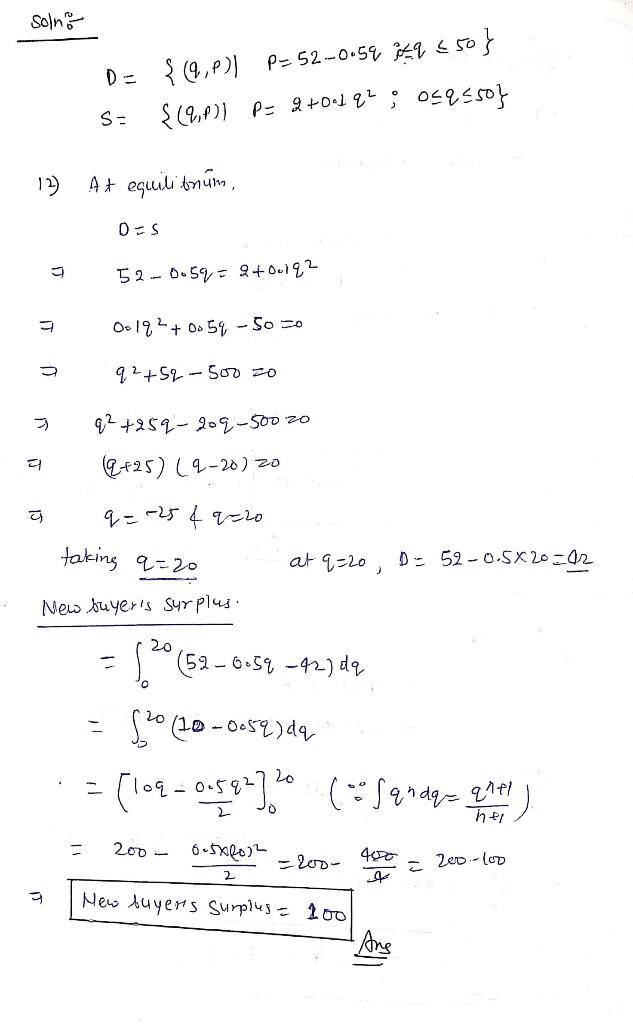 Soln:-
D = {(q,P)| P=52-0.5q 0≤q ≤ 50}
S= {(q,P)| P= 2+0.1 q² ; 0≤q≤50}
12) At equilibrium,
D=S
⇒ 52-0.5q = 2+0.1q²
⇒ 0.1q²+0.5q -50=0
⇒ q²+5q-500=0
⇒ q²+25q-20q-500=0
⇒ (q+25) (q-20)=0
⇒ q=-25 & q=20
taking q=20 at q=20, D= 52-0.5×20=42
New buyer's surplus.
= ∫₀²⁰ (52-0.5q -42) dq
= ∫₀²⁰ (10-0.5q) dq
= [10q - 0.5q²/2]₀²⁰ (∵ ∫qⁿdq= qⁿ⁺¹/n+1)
= 200 - 0.5×(20)²/2 = 200- 400/4 = 200-100
⇒ New buyers surplus = 100
Ans